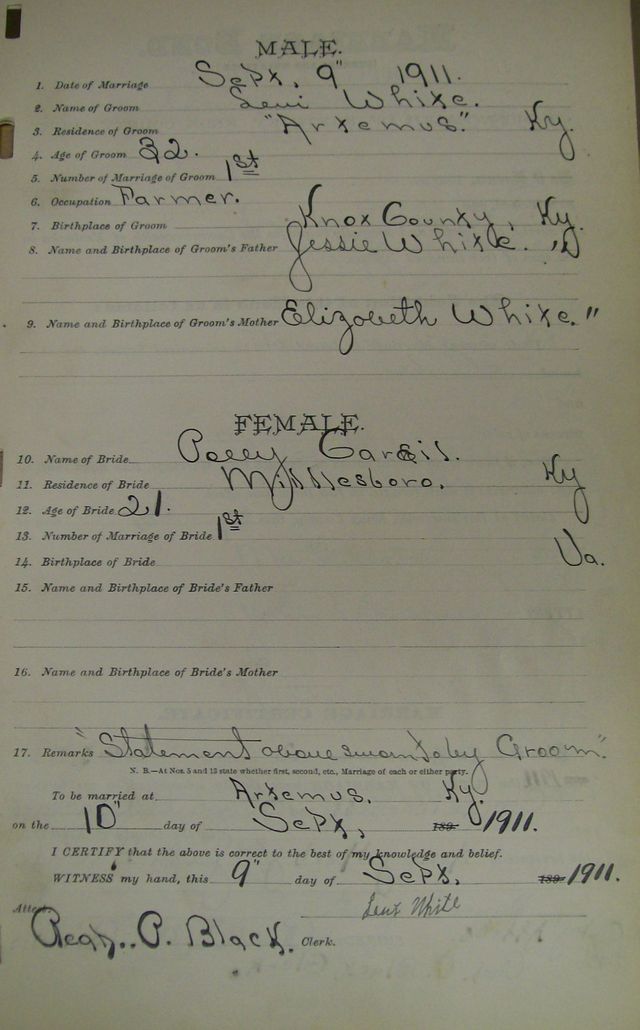 MALE.
1. Date of Marriage Sept. 9" 1911.
2. Name of Groom Levi White.
3. Residence of Groom "Artemus." Ky.
4. Age of Groom 32.
5. Number of Marriage of Groom 1st
6. Occupation Farmer.
7. Birthplace of Groom Knox County, Ky.
8. Name and Birthplace of Groom's Father Jessie White. "
9. Name and Birthplace of Groom's Mother Elizabeth White. "
FEMALE.
10. Name of Bride
11. Residence of Bride Middlesboro. Ky
12. Age of Bride 21.
13. Number of Marriage of Bride 1st
14. Birthplace of Bride Va.
15. Name and Birthplace of Bride's Father
16. Name and Birthplace of Bride's Mother
17. Remarks "Statement above sworn to by Groom."
N. B.—At Nos. 5 and 13 state whether first, second, etc., Marriage of each or either party.
To be married at Artemus, Ky.
on the 10" day of Sept, 189- 1911.
I CERTIFY that the above is correct to the best of my knowledge and belief.
WITNESS my hand, this 9" day of Sept, 189- 1911.
Levi White
Attest P. Black. Clerk.